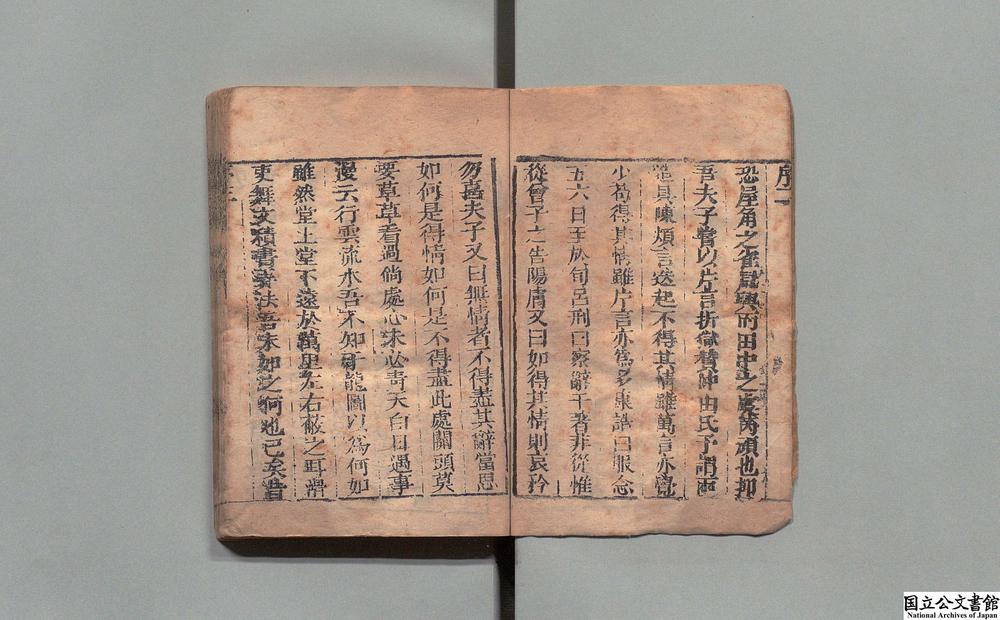 序二
恐屋角之雀鼠與前田中之虞芮頑也抑
吾夫子嘗以片言折獄贊仲由氏予謂兩
造具陳煩言迭起不得其情雖萬言亦覺
少苟得其情雖片言亦爲多康誥曰服念
五六日至於旬呂刑曰察辭于差非從惟
從曾子之告陽膚又曰如得其情則哀矜
勿喜夫子又曰無情者不得盡其辭當思
如何是得情如何是不得盡此處關頭莫
要草草看過倘處心未必靑天白日遇事
漫云行雲流水吾不知于龍圖以爲何如
雖然堂上堂下遠於萬里左右蔽之耳滑
吏舞文積書弄法吾末如之何也已矣昔
国立公文書館
National Archives of Japan